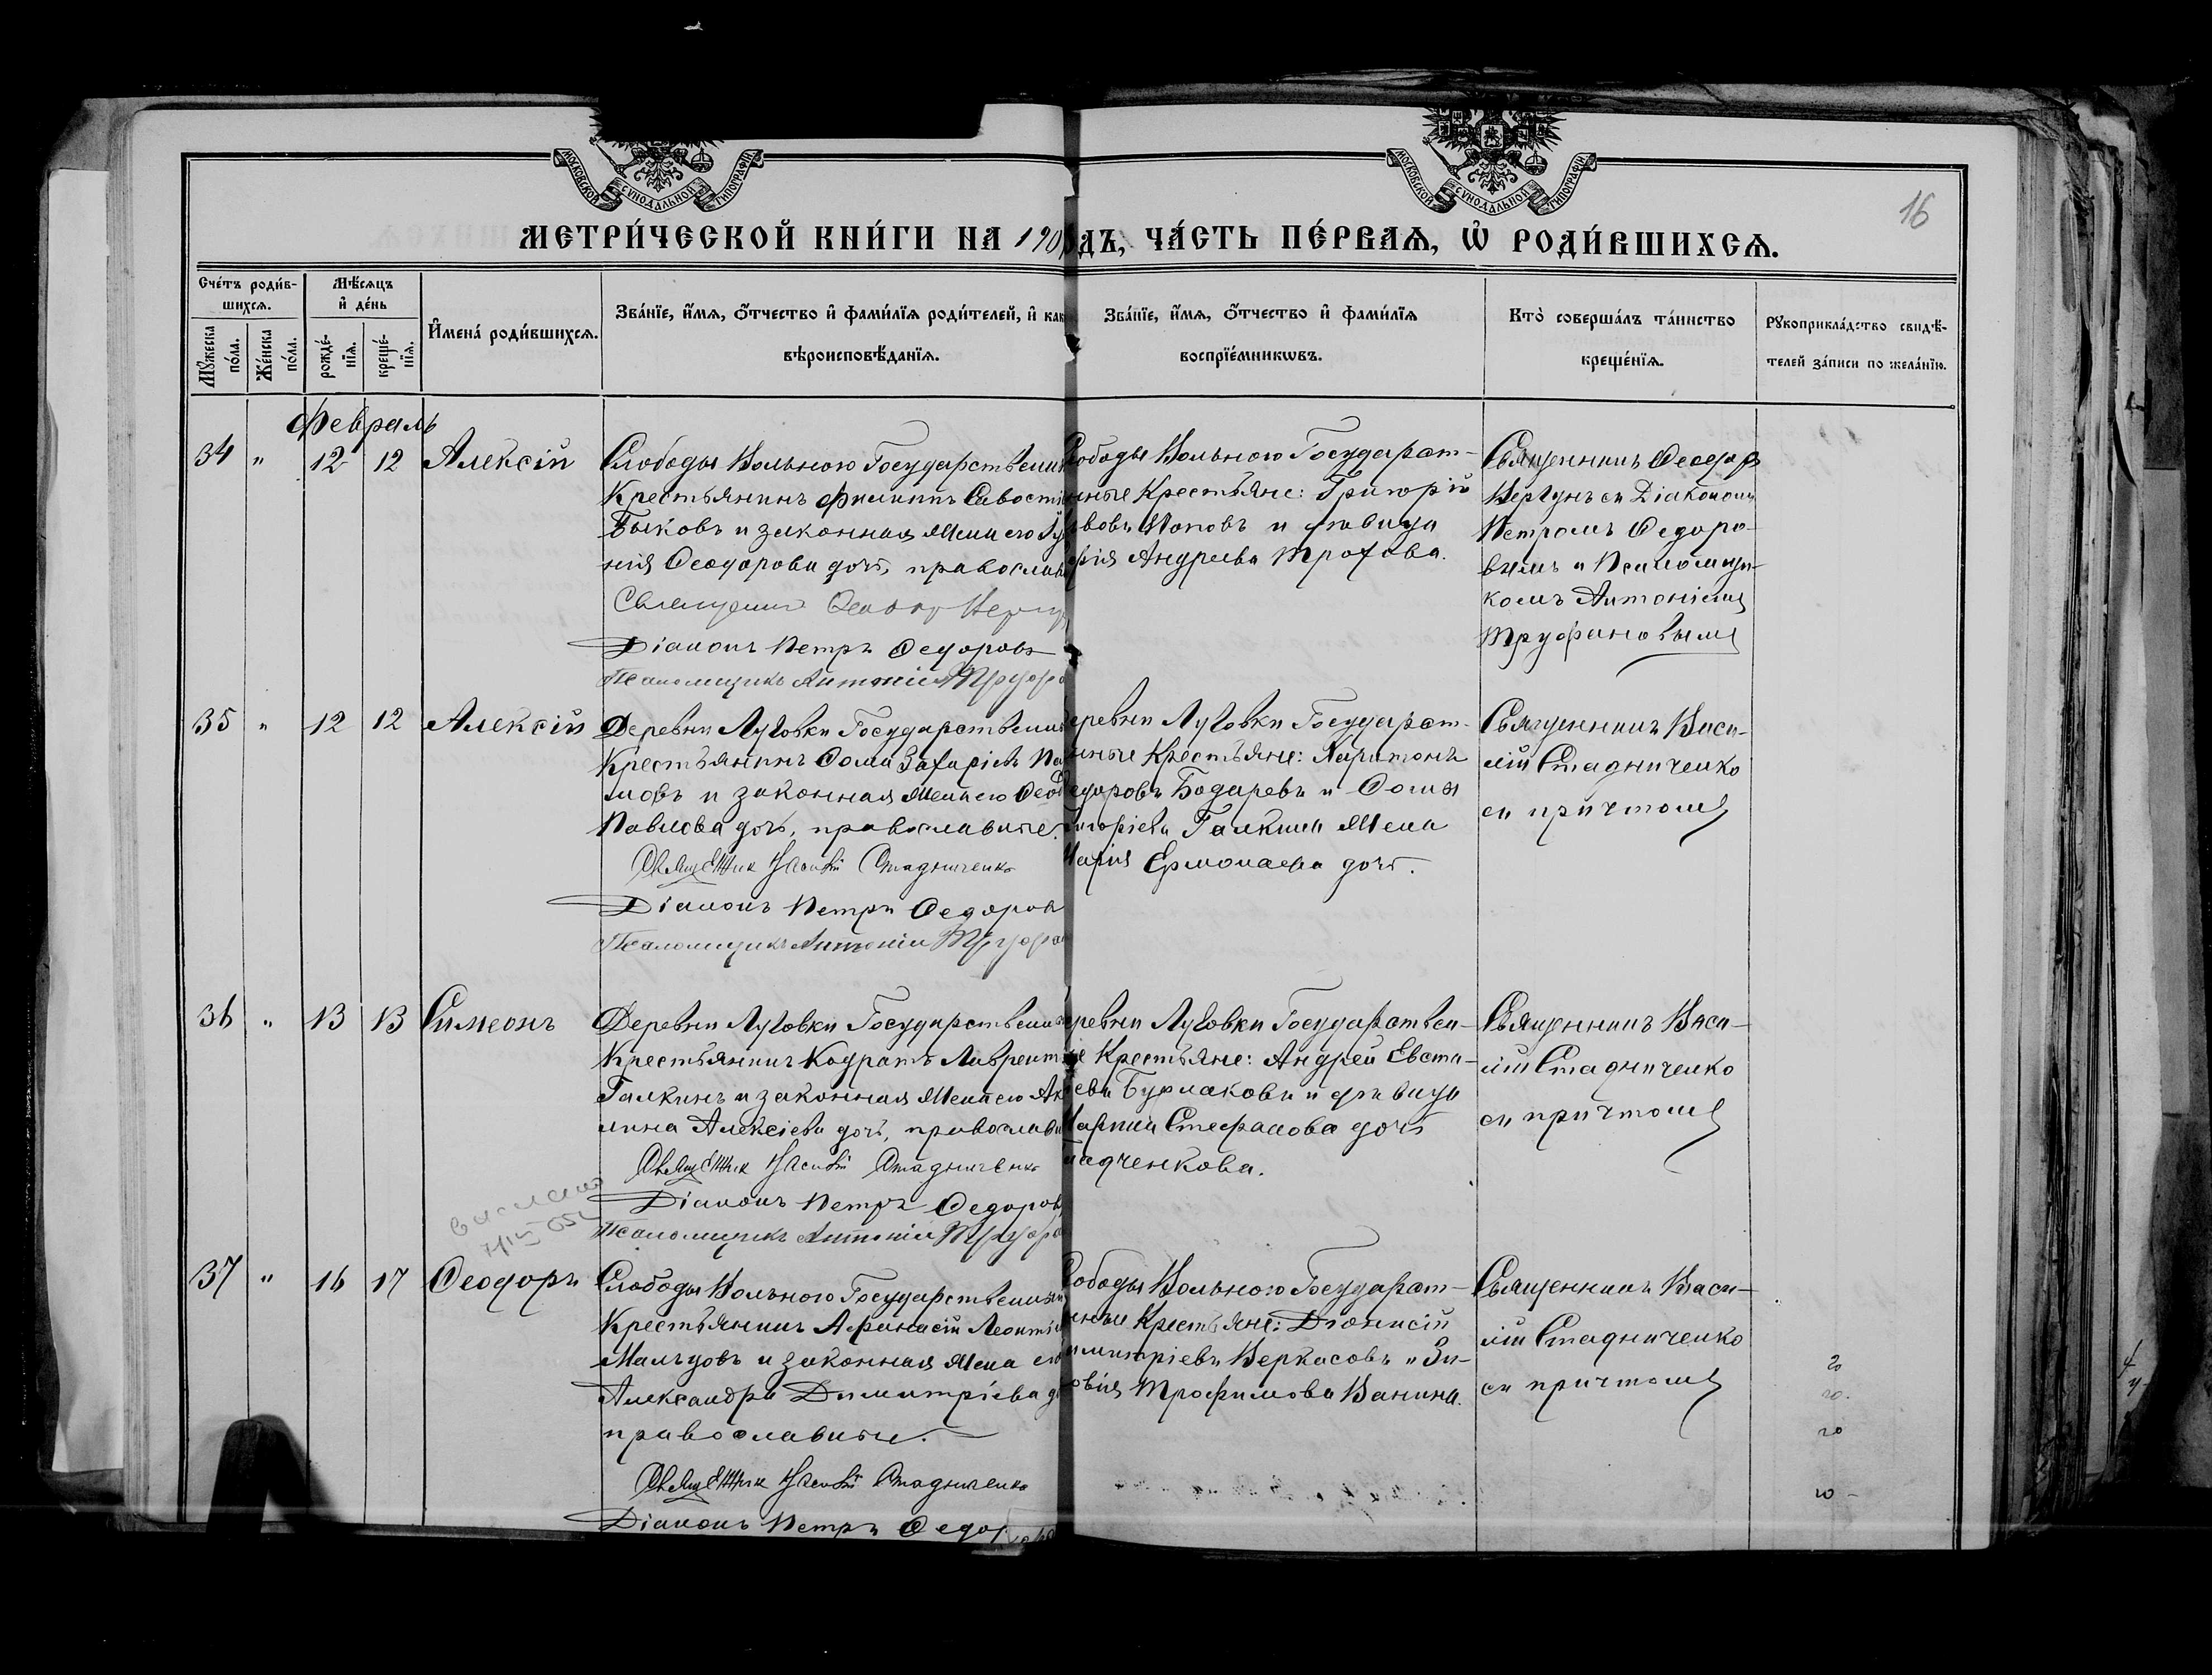 МОСКОВСКОЙ СУНОДАЛЬНОЙ ТИПОГРАФІИ
МОСКОВСКОЙ СУНОДАЛЬНОЙ ТИПОГРАФІИ
16
МЕТРИ́ЧЕСКОЙ КНИ́ГИ НА 190 ДЪ, ЧА́СТЬ ПЕ́РВАѦ, Ѡ҆ РОДИ́ВШИХСѦ.
Сче́тъ роди́в-
шихсѧ.
Мꙋ́жеска по́ла.
Же́нска по́ла.
Мѣ́сѧцъ
и҆ де́нь
рожде́-
нїѧ.
креще́-
нїѧ.
И҆мена̀ роди́вшихсѧ.
Зва́нїе, и҆́мѧ, ѻ҆́тчество и҆ фами́лїѧ роди́телей, и҆ как
вѣроисповѣ́данїѧ.
Зва́нїе, и҆́мѧ, ѻ҆́тчество и҆ фами́лїѧ
воспрїе́мникѡвъ.
Кто̀ соверша́лъ та́инство
креще́нїѧ.
Рꙋкоприкла́дство свидѣ́-
телей за́писи по жела́нїю.
Февраль
34 " 12 12 Алексій
Слободы Вольного Государственн
Крестьянинъ Филиппъ Савости
Быковъ и законная жена его
нія Ѳеодорова дочь, православ
Священникъ Ѳеодор Вергу
Діаконъ Петръ Ѳедоровъ
Псаломщикъ Антоній Труфа
ободы Вольного Государст-
нные Крестьяне: Григорій
вовъ Поповъ и дѣвица
рія Андреева Трохова.
Священникъ Ѳеодоръ
Вергунъ съ Діакономъ
Петромъ Ѳедоро-
вымъ и Псаломщи-
комъ Антоніемъ
Труфановымъ
35 " 12 12 Алексій
Деревни Луговки Государственн
Крестьянинъ Ѳома Захаріевъ Па
мовъ и законная жена его Ѳеод
Павлова дочь, православные.
Священник Василій Стадниченко
Діаконъ Петръ Ѳедоров
Псаломщикъ Антоній Труфа
еревни Луговки Государст-
нные Крестьяне: Харитонъ
едоровъ Бодаревъ и Ѳомы
игорьева Галкина жена
Марія Ермолаева дочь.
Священникъ Васи-
лій Стадниченко
съ причтомъ
36 " 13 13 Симеонъ
Деревни Луговки Государственн
Крестьянинъ Кодратъ Лаврент
Галкинъ и законная жена его Ак
лина Алексіева дочь, православн
Священник Василій Стадниченко
Діаконъ Петръ Ѳедоров
Псаломщикъ Антоній Труфа
еревни Луговки Государствен-
ые Крестьяне: Андрей Евста-
евъ Бурлаковъ и дѣвица
Стефанова дочь
адченкова.
Священникъ Васи-
лій Стадниченко
съ причтомъ
выслано
37 " 16 17 Ѳеодоръ
Слободы Вольного Государственны
Крестьянинъ Афанасій Леонтіе
Мальцовъ и законная жена его
Александра Димитріева д
православные.
Священник Василій Стадниченко
Діаконъ Петръ Ѳедор
ободы Вольного Государст-
нные Крестьяне: Діонисій
имитріевъ Веркасовъ и Зи-
овія Трофимова Ванина.
Священникъ Васи-
лій Стадниченко
съ причтомъ
20
20.
20
10 -